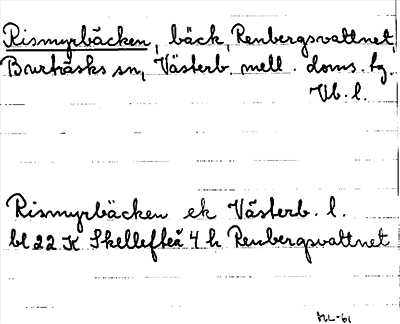 Rismyrbäcken, bäck, Renbergsvattnet
Burträsks sn, Västerb. mell. doms. tg.
Vb. l.
Rismyrbäcken ek Västerb. l.
bl 22 K Skellefteå 4 h Renbergsvattnet